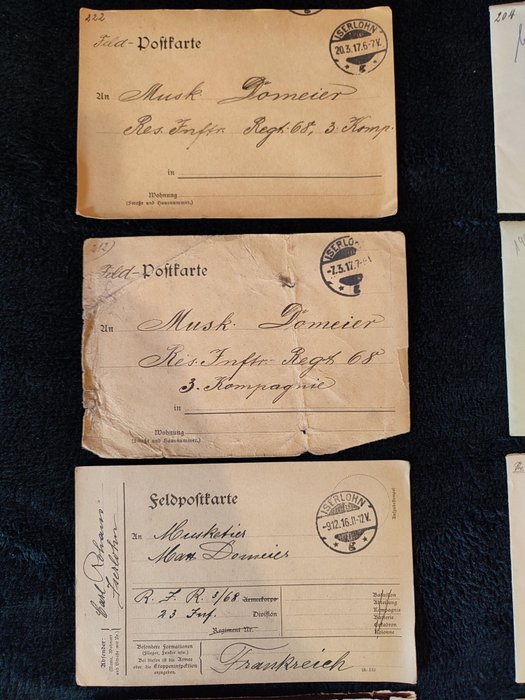 222
Feld-Postkarte
ISERLOHN
20.3.17.6-7V.
* g *
An Musk. Domeier
Res. Inftr. Regt. 68, 3. Komp.
in
Wohnung
(Straße und Hausnummer.)
212)
Feld-Postkarte
ISERLO
-7.3.17.7-
An Musk. Domeier
Res. Inftr. Regt 68
3. Kompagnie
in
Wohnung
(Straße und Hausnummer.)
Feldpostkarte
ISERLOHN
-9.12.16.11-12V.
* g *
An Musketier
Max Domeier
R. I. R. 3/68 Armeekorps
23 Inf. Division
Regiment Nr.
Bataillon
Abteilung
Kompagnie
Batterie
Eskadron
Kolonne
Besondere Formationen
(Flieger, Funker usw.)
Bei diesen ist die Armee
oder die Etappeninspektion
anzugeben.
Frankreich
Absender:
Carl
Iserlohn
204